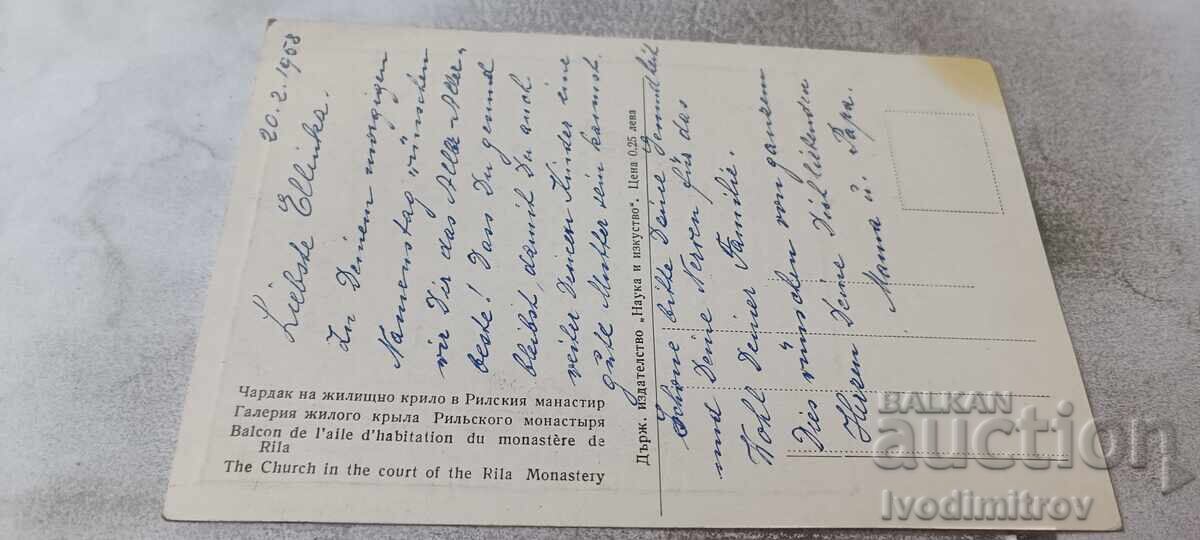 20.2.1958
Liebste Ellinka.
Zu Deinem morgigen
Namenstag wünschen
wir Dir das Aller-Aller-
beste! Dass Du gesund
bleibst, damit Du auch
weiter Deinen Kinder eine
gute Mutter sein kannst.
Schöne bitte Deine Gesundheit
und Deine Nerven für das
Wohl Deiner Familie.
Dies wünschen von ganzem
Herzen Deine Dich liebenden
Mama u. Papa.
Чардак на жилищно крило в Рилския манастир
Галерия жилого крыла Рильского монастыря
Balcon de l'aile d'habitation du monastère de
Rila
The Church in the court of the Rila Monastery
Държ. издателство „Наука и изкуство". Цена 0,25 лева
BALKAN
auction
Ivodimitrov